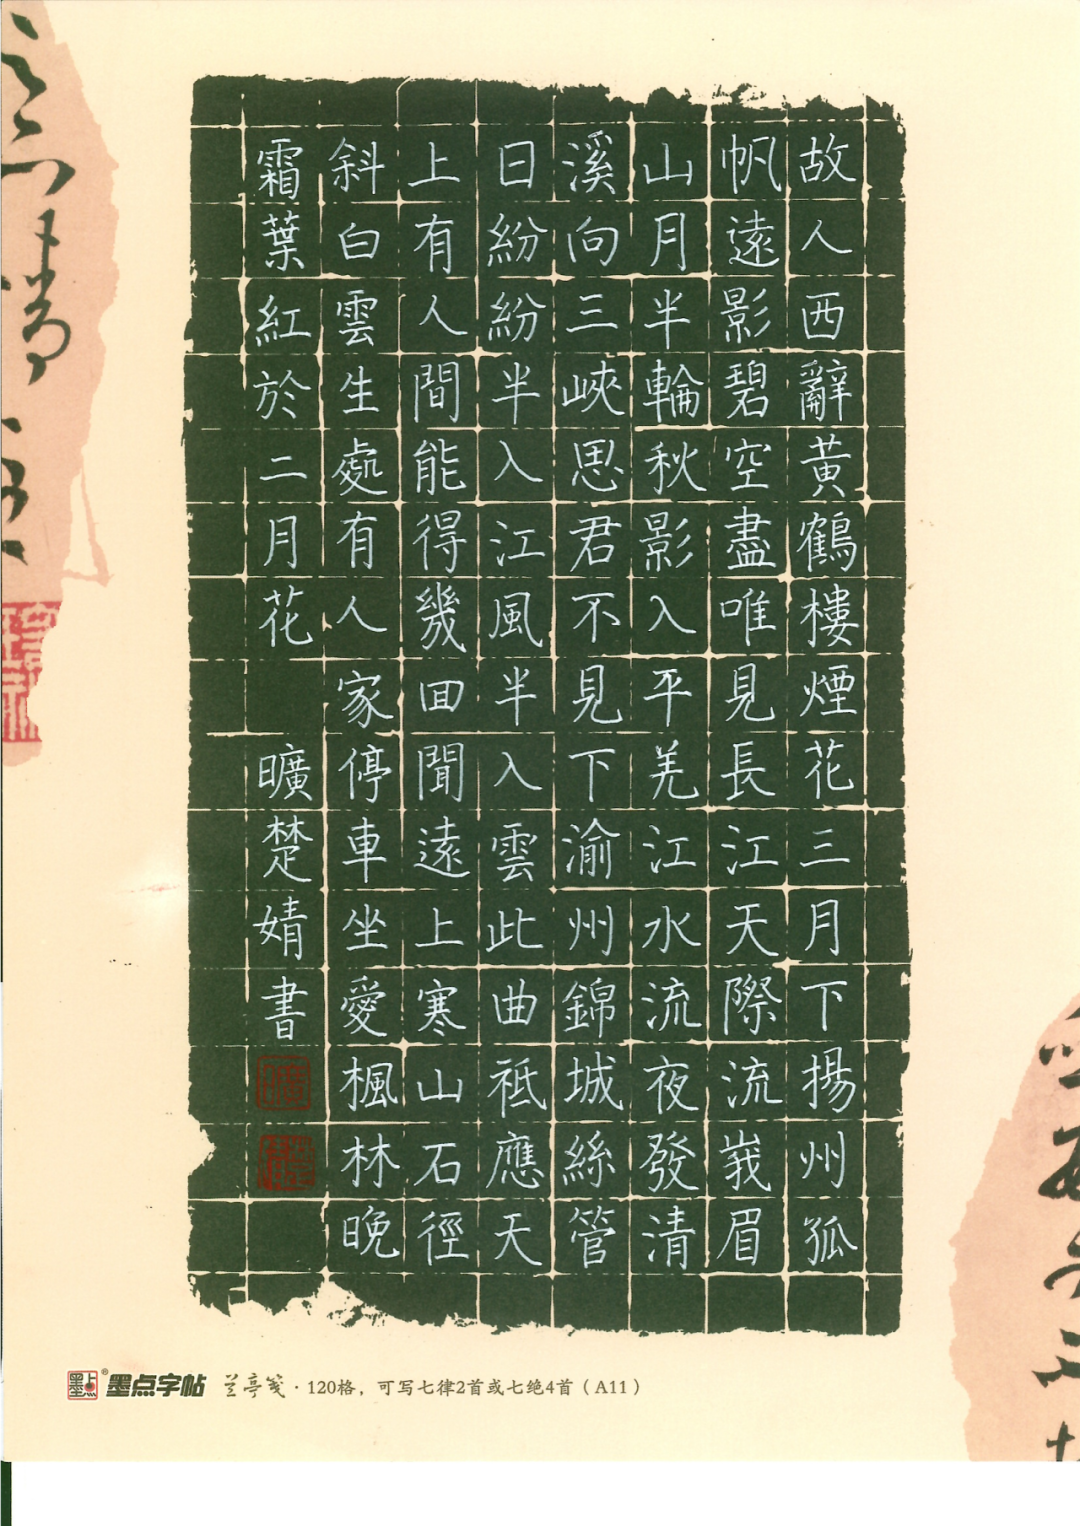 故人西辭黃鶴樓煙花三月下揚州孤
帆遠影碧空盡唯見長江天際流峩眉
山月半輪秋影入平羌江水流夜發清
溪向三峽思君不見下渝州錦城絲管
日紛紛半入江風半入雲此曲祗應天
上有人間能得幾回聞遠上寒山石徑
斜白雲生處有人家停車坐愛楓林晚
霜葉紅於二月花 曠楚婧書
墨点字帖 兰亭笺·120格，可写七律2首或七绝4首（A11）